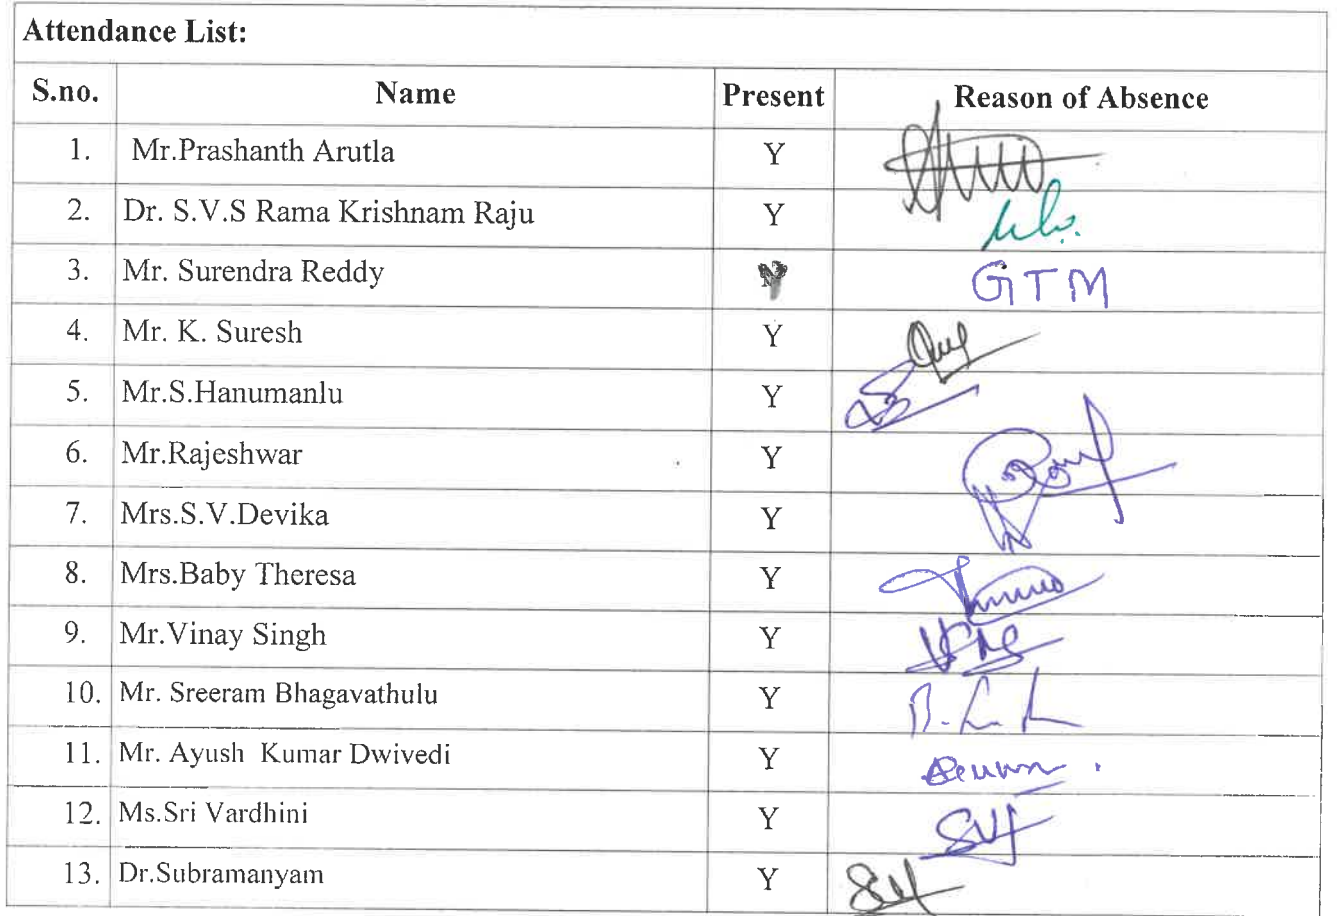 Attendance List:
S.no. Name Present Reason of Absence
1. Mr.Prashanth Arutla Y
2. Dr. S.V.S Rama Krishnam Raju Y
3. Mr. Surendra Reddy GTM
4. Mr. K. Suresh Y
5. Mr.S.Hanumanlu Y
6. Mr.Rajeshwar Y
7. Mrs.S.V.Devika Y
8. Mrs.Baby Theresa Y
9. Mr.Vinay Singh Y
10. Mr. Sreeram Bhagavathulu Y
11. Mr. Ayush Kumar Dwivedi Y
12. Ms.Sri Vardhini Y
13. Dr.Subramanyam Y